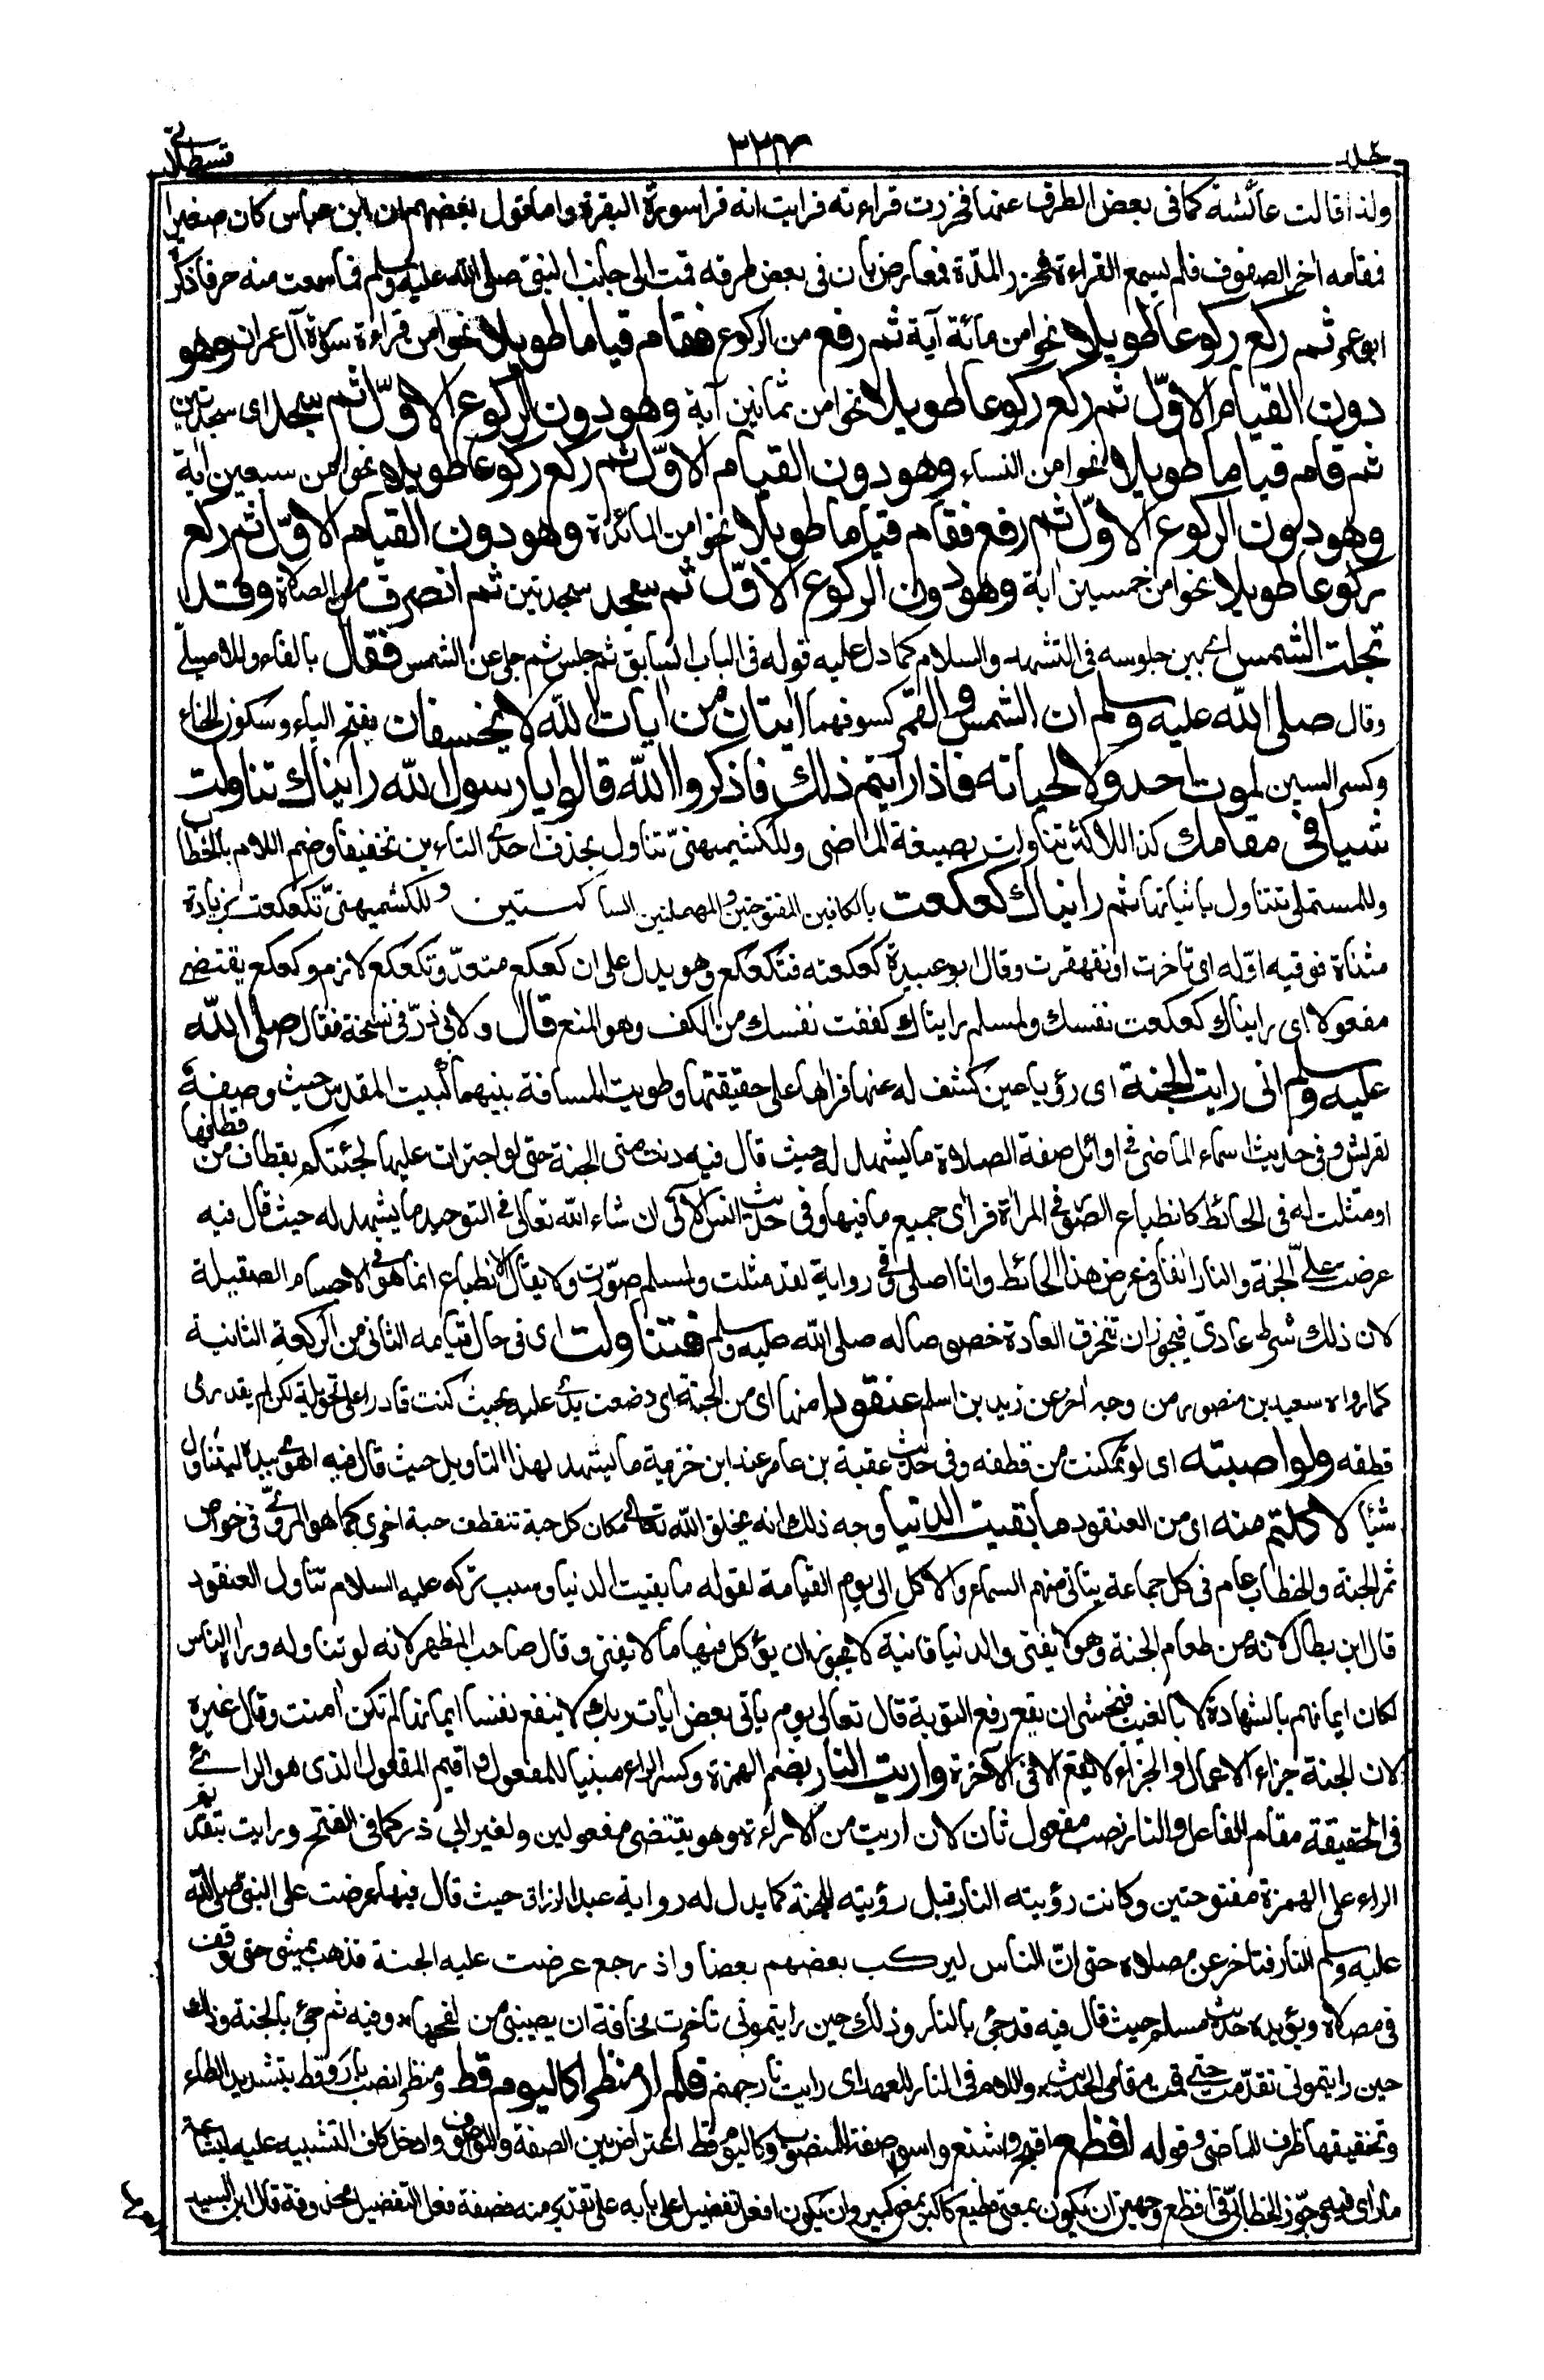 قسطلانى
٣٢٦
ولذا قالت عائشة كما فى بعض الطرف عنها فحزرت قراءته فرايت انه قرا سورة البقرة واما قول بعضهم ان ابن عباس كان صغيرا
فمقامه اخر الصفوف فلم يسمع القراءة فحزر المدة فمعارض بان فى بعض طرقه قمت الى جانب النبى صلى الله عليه وسلم فما سمعت منه حرفا ذكر
ابو عمر ثم ركع ركوعا طويلا نحوا من مائة آية ثم رفع من الركوع فقام قياما طويلا نحوا من قراءة سورة آل عمران وهو
دون القيام الاوّل ثم ركع ركوعا طويلا نحوا من ثمانين آية وهو دون الركوع الاوّل ثم سجد اى سجدتين
ثم قام قياما طويلا نحوا من النساء وهو دون القيام الاوّل ثم ركع ركوعا طويلا نحوا من سبعين آية
وهو دون الركوع الاوّل ثم رفع فقام قياما طويلا نحوا من المائدة وهو دون القيام الاوّل ثم ركع
ركوعا طويلا نحوا من خمسين آية وهو دون الركوع الاوّل ثم سجد سجدتين ثم انصرف من الصلاة وقد
تجلت الشمس اى بين جلوسه فى التشهد والسلام كما دل عليه قوله فى الباب السابق ثم جلس ثم جلى عن الشمس فقال بالفاء وللاصيلى
وقال صلى الله عليه وسلم ان الشمس والقمر كسوفهما آيتان من آيات الله لا يخسفان بفتح الياء وسكون الخاء
وكسر السين لموت احد ولا لحياته فاذا رايتم ذلك فاذكروا الله قالوا يا رسول الله رايناك تناولت
شيا فى مقامك كذا للاكثر تناولت بصيغة الماضى وللكشميهنىّ تناول بحذف احدى التاءين تخفيفا وضم اللام بالخطاب
وللمستملى تتناول باثباتها ثم رايناك كعكعت بالكافين المفتوحتين والمهملتين الساكنتين وللكشميهنىّ تكعكعت بزيادة
مثناة فوقيه اوّله اى تاخرت او تقهقرت وقال ابو عبيدة كعكعته فتكعكع وهو يدل على ان كعكع متعدّ وتكعكع لازم وكعكع يقتضى
مفعولا اى رايناك كعكعت نفسك ولمسلم رايناك كففت نفسك من الكف وهو المنع قال ولابى ذرّ فى نسخة فقال صلى الله
عليه وسلم انى رايت الجنة اى رؤيا عين كشف له عنها فراها على حقيقتها وطويت المسافة بينهما كبيت المقدس حيث وصفه
لقريش وفى حديث اسماء الماضى فى اوائل صفة الصلاة ما يشهد له حيث قال فيه دنت منى الجنة حتى لو اجترات عليها لجئتكم بقطاف من قطافها
او مثلت له فى الحائط كانطباع الصور فى المراة فراى جميع ما فيها وفى حديث انس الآتى ان شاء الله تعالى فى التوحيد ما يشهد له حيث قال فيه
عرضت علىّ الجنة والنار آنفا فى عرض هذا الحائط وانا اصلى وفى رواية لقد مثلت ولمسلم صوّرت ولا يقال الانطباع انما هو فى الاجسام الصقيلة
لان ذلك شرط عادىّ فيجوز ان تنخرق العادة خصوصا له صلى الله عليه وسلم فتناولت اى فى حال قيامه الثانى من الركعة الثانية
كما رواه سعيد بن منصور من وجه آخر عن زيد بن اسلم عنقودا منها اى من الجنة اى وضعت يدى عليه بحيث كنت قادرا على تحويله لكن لم يقدر لى
قطفه ولو اصبته اى لو تمكنت من قطفه وفى حديث عقبة بن عامر عند ابن خزيمة ما يشهد لهذا التاويل حيث قال فيه اهوى بيده ليتناول
شيأ لاكلتم منه اى من العنقود ما بقيت الدنيا وجه ذلك انه يخلق الله تعالى مكان كل حبة تنقطف حبة اخرى كما هو المروىّ فى خواص
ثمر الجنة والخطاب عام فى كل جماعة يتاتى منهم السماع والاكل الى يوم القيامة لقوله ما بقيت الدنيا وسبب تركه عليه السلام تناول العنقود
قال ابن بطال لانه من طعام الجنة وهو لا يفنى والدنيا فانية لا يجوز ان يؤكل فيها ما لا يفنى وقال صاحب المظهر لانه لو تناوله وراه الناس
لكان ايمانهم بالشهادة لا بالغيب فيخشى ان يقع رفع التوبة قال تعالى يوم ياتى بعض آيات ربك لا ينفع نفسا ايمانها لم تكن آمنت وقال غيره
لان الجنة جزاء الاعمال والجزاء لا يقع الا فى الآخرة واريت النار بضم الهمزة وكسر الراء مبنيا للمفعول واقيم المفعول الذى هو الرائى
فى الحقيقة مقام الفاعل والنار نصب مفعول ثان لان اريت من الاراءة وهو يقتضى مفعولين ولغير ابى ذر كما فى الفتح ورايت بتقديم
الراء على الهمزة مفتوحتين وكانت رؤيته النار قبل رؤيته الجنة كما يدل له رواية عبد الرزاق حيث قال فيها عرضت على النبى صلى الله
عليه وسلم النار فتاخر عن مصلاه حتى انّ الناس ليركب بعضهم بعضا واذ رجع عرضت عليه الجنة فذهب يمشى حتى وقف
فى مصلاه ويؤيده حديث مسلم حيث قال فيه قد جئ بالنار وذلك حين رايتمونى تاخرت مخافة ان يصيبنى من لفحها وفيه ثم جئ بالجنة وذلك
حين رايتمونى تقدّمت حتى قمت مقامى الحديث واللام فى النار للعهد اى رايت نار جهنم فلم ار منظرا كاليوم قط ومنظرا نصب بار وقط بتشديد الطاء
وتخفيفها ظرف للماضى وقوله افظع اقبح واشنع واسوا صفة للمنصوب وكاليوم قط اعتراض بين الصفة والموصوف وادخل كاف التشبيه عليه لبشاعة
ما راى فيه وجوّز الخطابى فى افظع وجهين ان يكون بمعنى فظيع كاكبر بمعنى كبير وان يكون افعل تفضيل على بابه على تقدير منه فصفة فعل التفضيل محذوفة قال ابن السيد